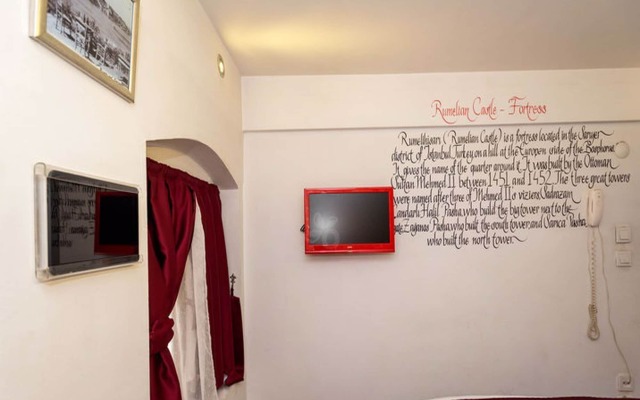 Rumelian Castle - Fortress
Rumelihisarı (Rumelian Castle) is a fortress located in the Sarıyer
district of Istanbul, Turkey, on a hill at the European side of the Bosphorus.
It gives the name of the quarter around it. It was built by the Ottoman
Sultan Mehmed II between 1451 and 1452. The three great towers
were named after three of Mehmed II's viziers, Sadrazam
Çandarlı Halil Pasha, who build the big tower next to the
Zağanos Pasha, who built the south tower, and Sarıca Pasha,
who built the north tower.